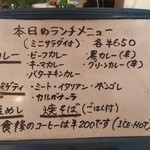 本日のランチメニュー
(ミニサラダ付) 各¥650
カレー ・ビーフカレー ・黒カレー(辛)
・キーマカレー ・グリーンカレー(辛)
・バターチキンカレー
・ミート・イタリアン・ボンゴレ
・カルボナーラ
焼そば(ごはん付)
食後のコーヒーは¥200です(ICE・HOT)